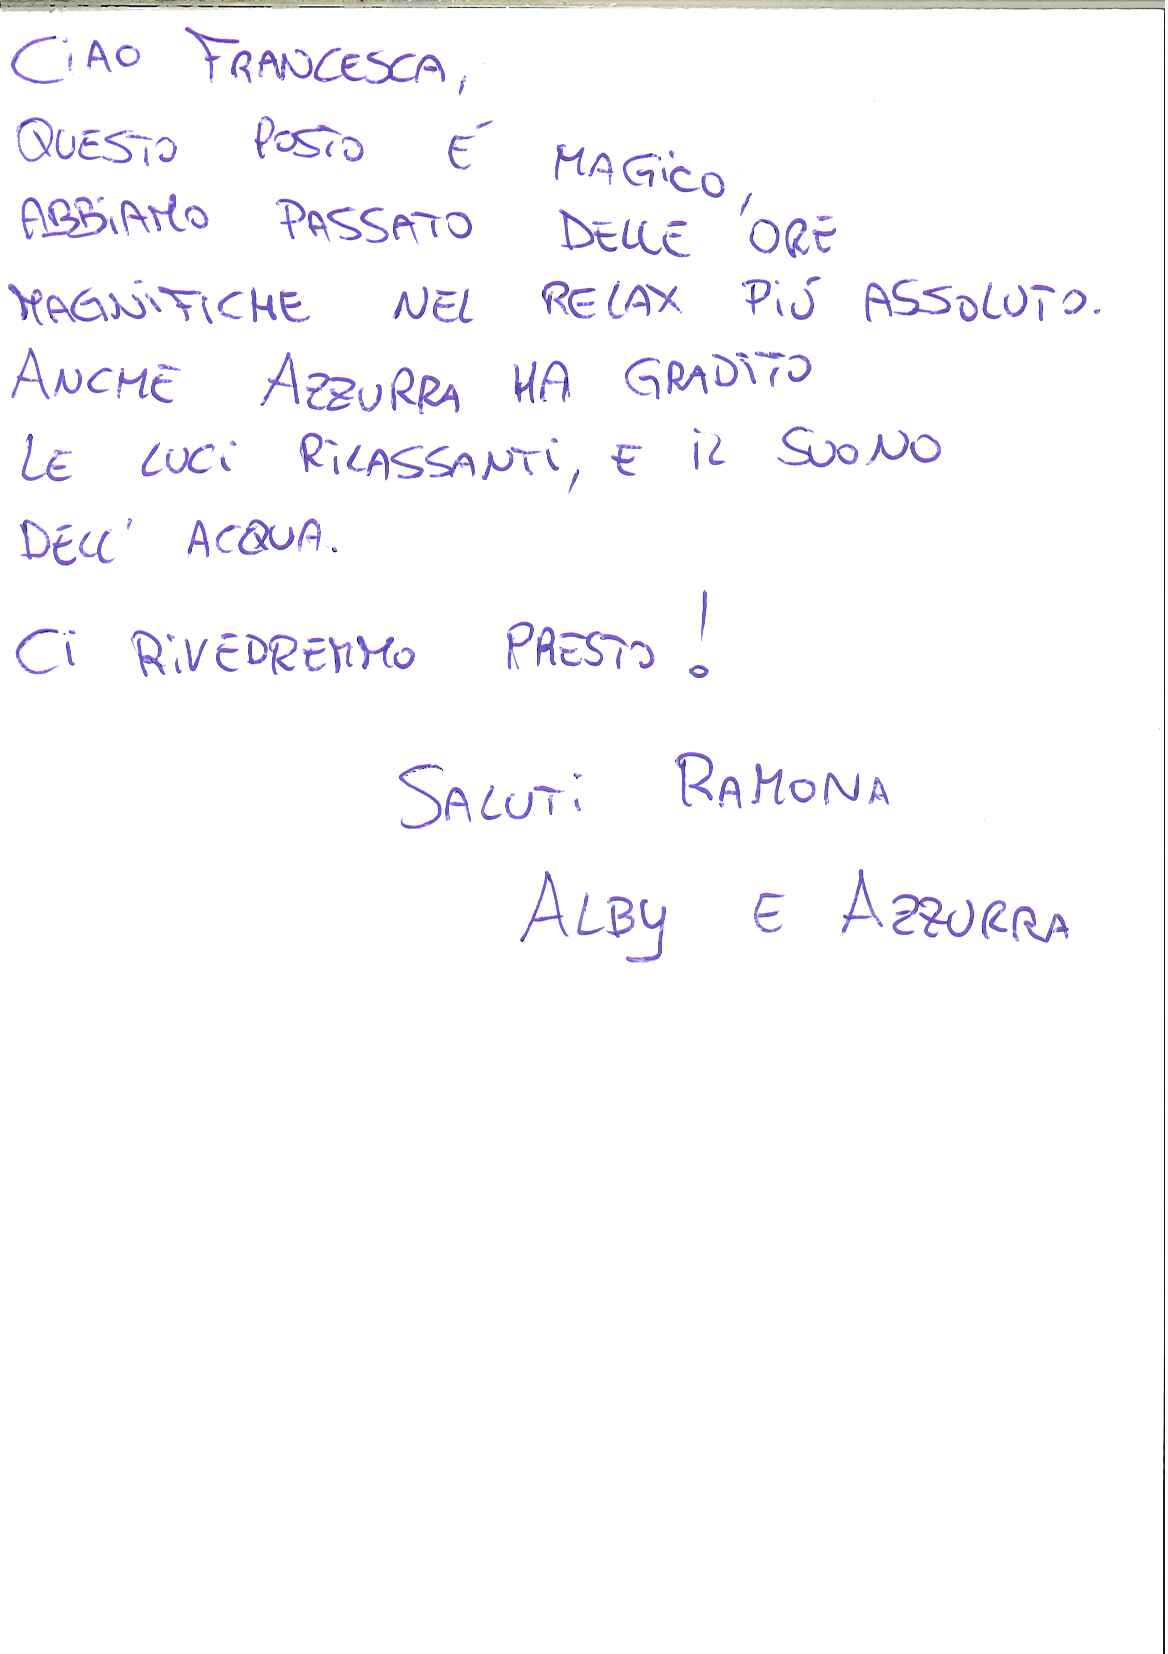 CIAO FRANCESCA,
QUESTO POSTO É MAGICO,
ABBIAMO PASSATO DELLE ORE
MAGNIFICHE NEL RELAX PIÚ ASSOLUTO.
ANCHE AZZURRA HA GRADITO
LE LUCI RILASSANTI, E IL SUONO
DELL' ACQUA.
CI RIVEDREMMO PRESTO!
SALUTI RAMONA
ALBY E AZZURRA